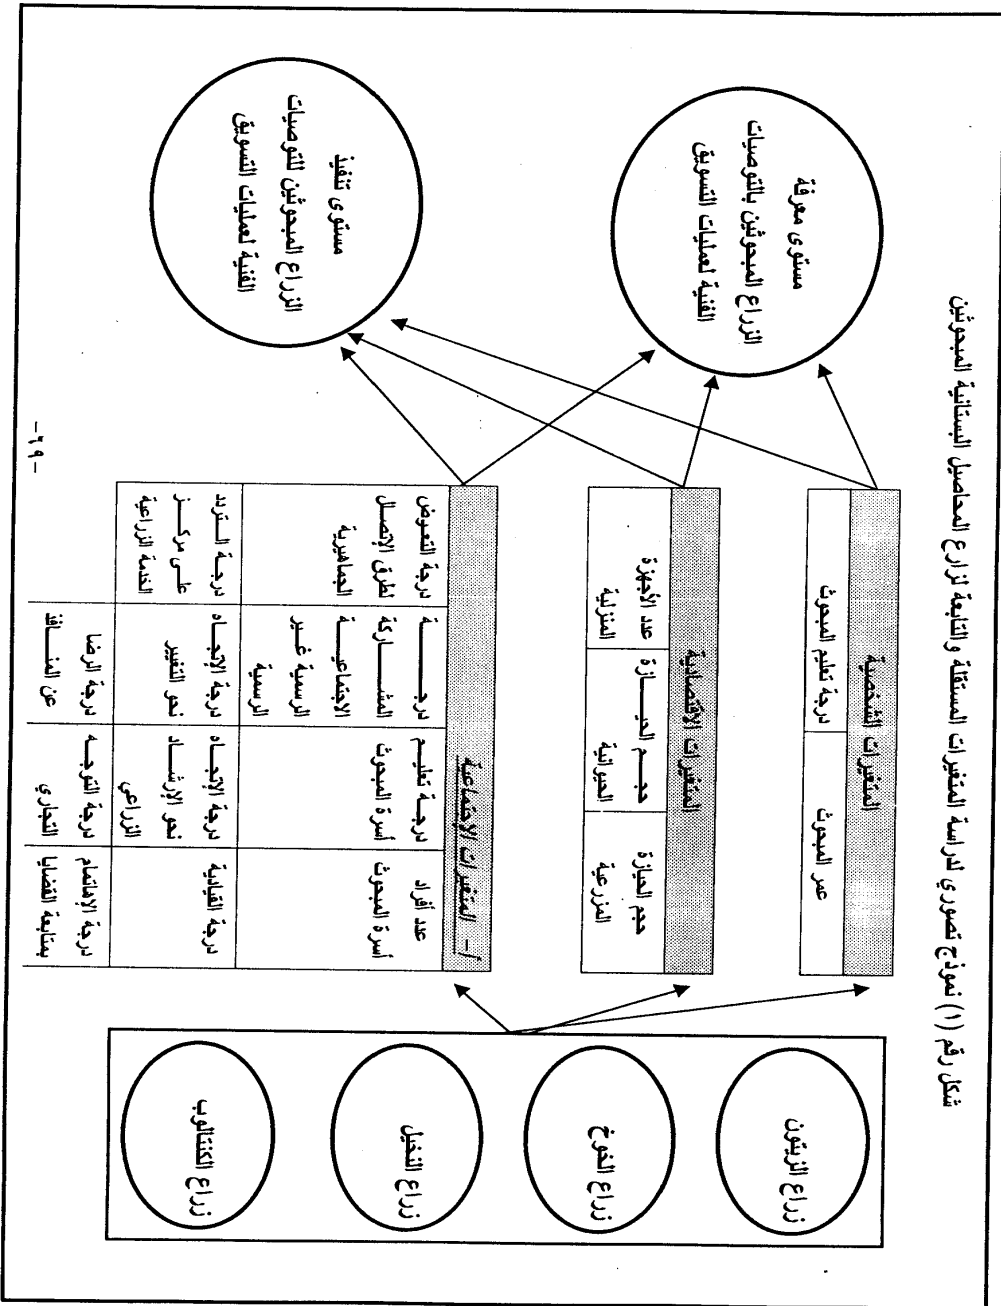 شكل رقم (١) نموذج تصوري لدراسة المتغيرات المستقلة والتابعة لزارع المحاصيل البستانية المبحوثين
زراع الزيتون
زراع الخوخ
زراع النخيل
زراع الكنتالوب
المتغيرات الشخصية
عمر المبحوث
درجة تعليم المبحوث
المتغيرات الاقتصادية
حجم الحيازة
المزرعية
حجم الحيازة
الحيوانية
عدد الأجهزة
المنزلية
أ- المتغيرات الاجتماعية
عدد أفراد
أسرة المبحوث
درجة تعليم
أسرة المبحوث
درجة
المشاركة
الاجتماعية
الرسمية غير
الرسمية
درجة التعرض
لطرق الإتصال
الجماهيرية
درجة القيادية
درجة الإتجاه
نحو الإرشاد
الزراعي
درجة الإتجاه
نحو التغيير
درجة التردد
على مركز
الخدمة الزراعية
درجة الإهتمام
بمتابعة القضايا
درجة التوجه
التجاري
درجة الرضا
عن المنافذ
مستوى معرفة
الزراع المبحوثين بالتوصيات
الفنية لعمليات التسويق
مستوى تنفيذ
الزراع المبحوثين للتوصيات
الفنية لعمليات التسويق
-٦٩-